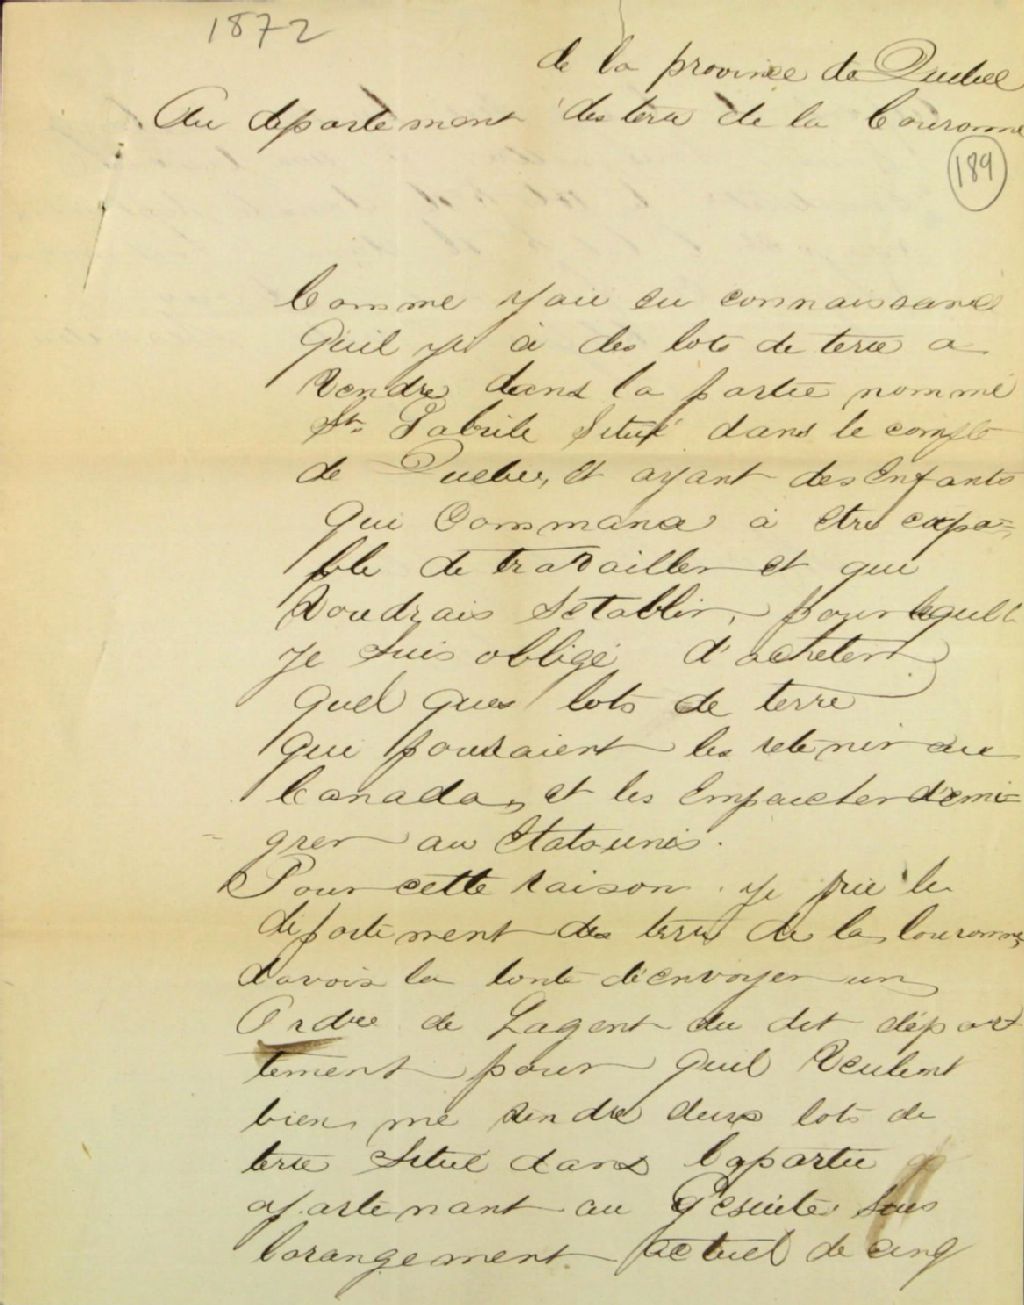 1872
de la province de Quebec
Au departement des terre de la Couronne
189
Comme j'aie eu connaissance
Quil yi à des lots de terre a
Vendre dans la partie nommé
St. Gabriele Situé dans le comté
de Quebec, et ayant des Enfants
Qui Commance à être capa=
ble de travailler et qui
Voudrais S'etablir, pour lequell
je Suis obligé d'acheter
quel ques lots de terre
qui pouraient les retenir au
Canada, et les Empaicher d'emi=
grer au Etatsunis.
Pour cette raison je prie le
département des terres de la Couronne
davoir la bonté d'envoyer un
Ordre de Lagent du dit départ
tement pour quil Veulent
bien me vendre deux lots de
terre Situé dans la partie
apartenant au Gesuites Sous
larangement actuel de cinq